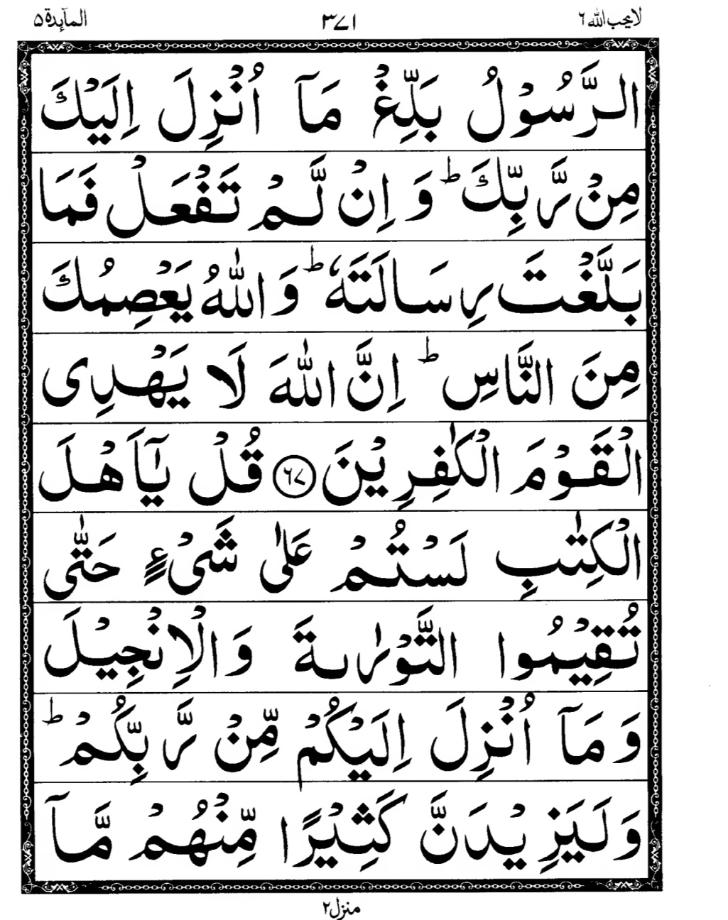 لا يحب الله ٦ ٣٧١ المآئدة ٥
الرَّسُوْلُ بَلِّغْ مَآ اُنْزِلَ اِلَيْكَ
مِنْ رَّبِّكَ ؕ وَ اِنْ لَّمْ تَفْعَلْ فَمَا
بَلَّغْتَ رِسَالَتَهٗ ؕ وَ اللّٰهُ يَعْصِمُكَ
مِنَ النَّاسِ ؕ اِنَّ اللّٰهَ لَا يَهْدِى
الْقَوْمَ الْكٰفِرِيْنَ ۝٦٧ قُلْ يٰۤاَهْلَ
الْكِتٰبِ لَسْتُمْ عَلٰى شَىْءٍ حَتّٰى
تُقِيْمُوا التَّوْرٰىةَ وَ الْاِنْجِيْلَ
وَ مَآ اُنْزِلَ اِلَيْكُمْ مِّنْ رَّبِّكُمْ ؕ
وَ لَيَزِيْدَنَّ كَثِيْرًا مِّنْهُمْ مَّآ
منزل ٢